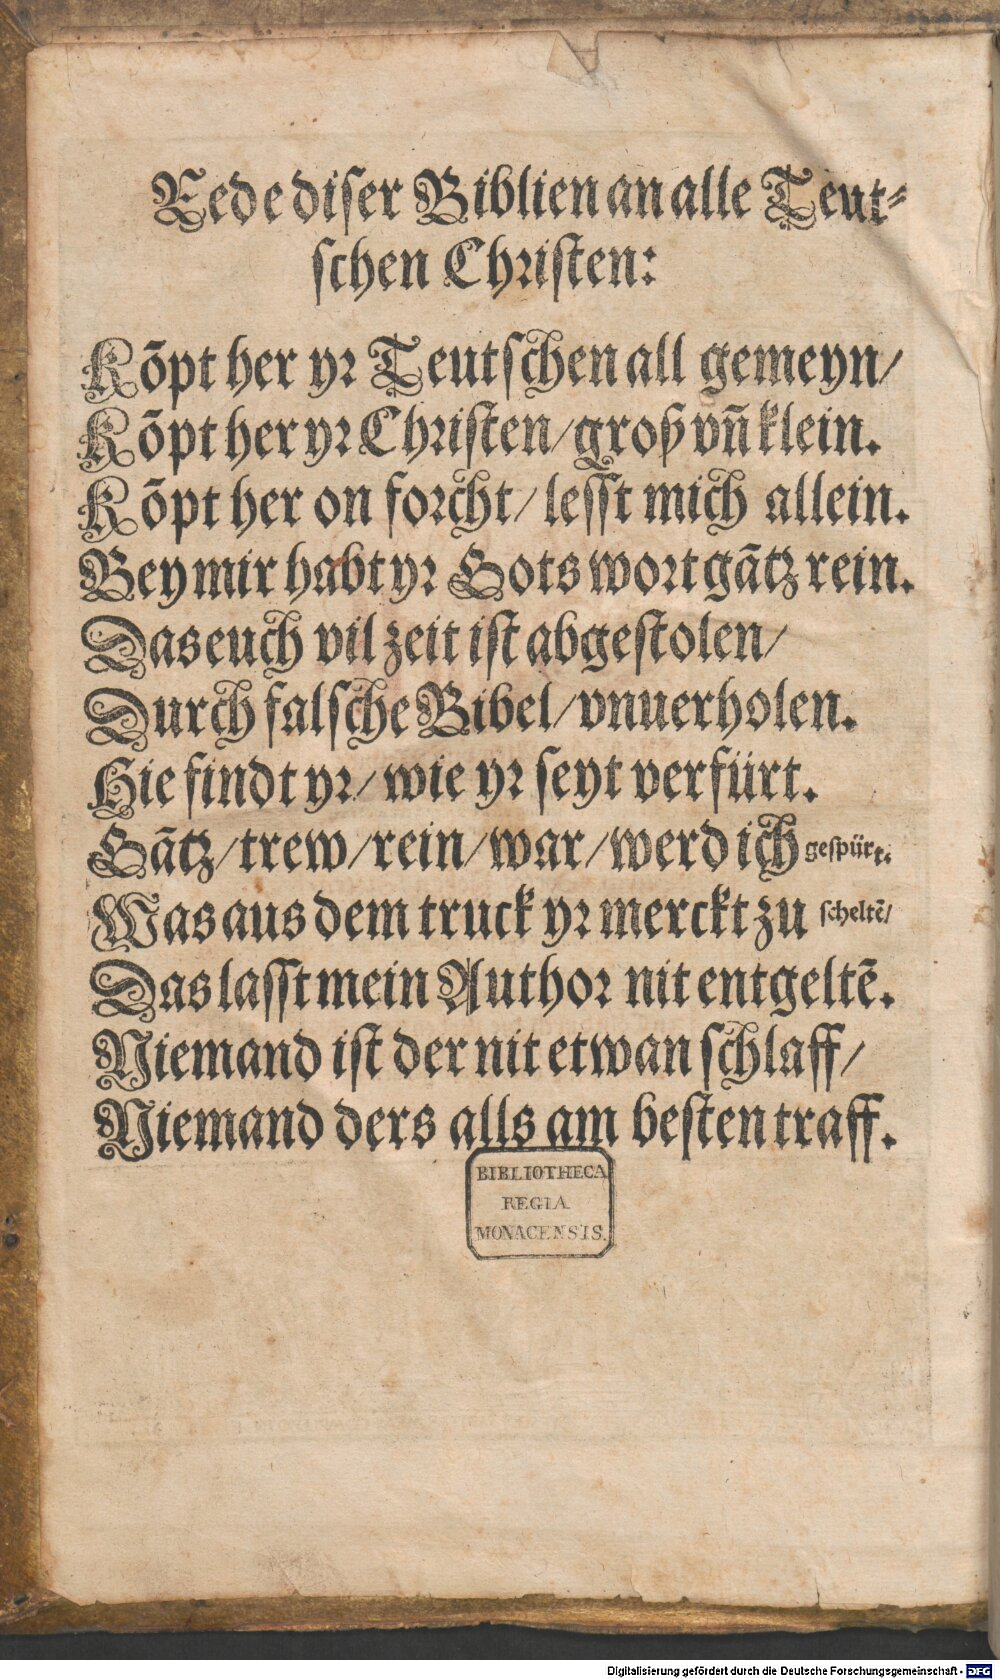 Rede diser Biblien an alle Teut⸗
schen Christen:
Kõpt her yr Teutschen all gemeyn/
Kõpt her yr Christen/groß vñ klein.
Kõpt her on forcht/ lesst mich allein.
Bey mir habt yr Gots wort gãtz rein.
Das euch vil zeit ist abgestolen/
Durch falsche Bibel/vnuerholen.
Hie findt yr/wie yr seyt verfürt.
Gãtz/trew/rein/war/werd ich gespürt.
Was aus dem truck yr merckt zu scheltẽ/
Das lasst mein Author nit entgeltẽ.
Niemand ist der nit etwan schlaff/
Niemand ders alls am besten traff.
BIBLIOTHECA
REGIA
MONACENSIS.
Digitalisierung gefördert durch die Deutsche Forschungsgemeinschaft - DFG